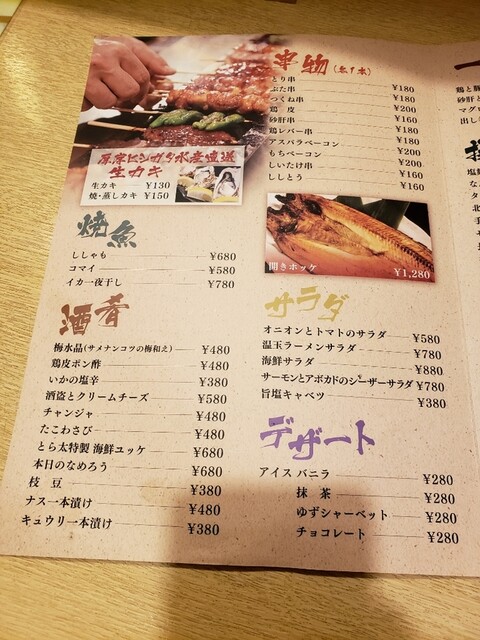 串物(各1本)
とり串 ¥180
ぶた串 ¥180
つくね串 ¥180
鶏皮 ¥200
砂肝串 ¥160
鶏レバー串 ¥180
アスパラベーコン ¥200
もちベーコン ¥200
しいたけ串 ¥160
ししとう ¥160
厚岸ピンガタ水産直送
生カキ
生カキ ¥130
焼・蒸しカキ ¥150
焼魚
ししゃも ¥680
コマイ ¥580
イカ一夜干し ¥780
開きホッケ ¥1,280
酒肴
梅水晶(サメナンコツの梅和え) ¥480
鶏皮ポン酢 ¥480
いかの塩辛 ¥380
酒盗とクリームチーズ ¥580
チャンジャ ¥480
たこわさび ¥480
とら太特製 海鮮ユッケ ¥680
本日のなめろう ¥680
枝豆 ¥380
ナス一本漬け ¥480
キュウリ一本漬け ¥380
サラダ
オニオンとトマトのサラダ ¥580
温玉ラーメンサラダ ¥780
海鮮サラダ ¥880
サーモンとアボカドのシーザーサラダ ¥780
旨塩キャベツ ¥380
デザート
アイス バニラ ¥280
抹茶 ¥280
ゆずシャーベット ¥280
チョコレート ¥280
鶏と豚
砂肝と
マグロ
出し
塩鮮